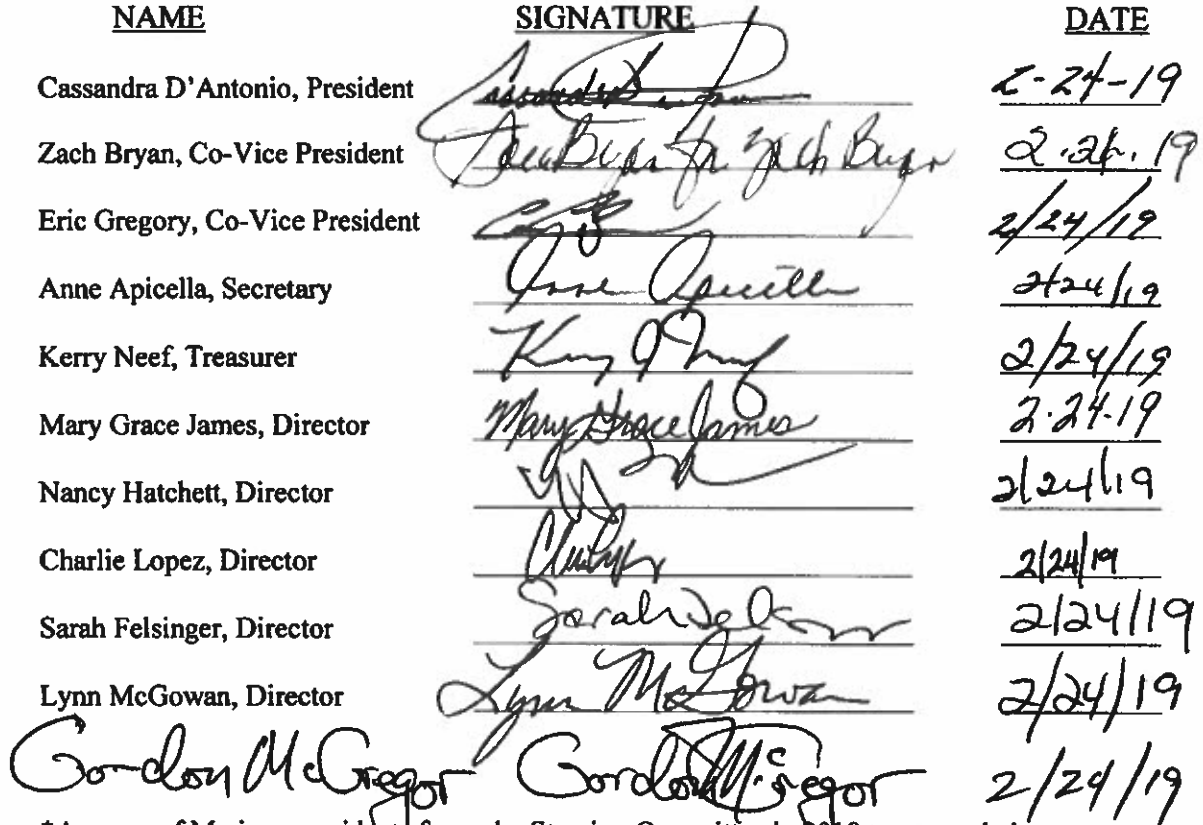 NAME SIGNATURE DATE
Cassandra D'Antonio, President 2-24-19
Zach Bryan, Co-Vice President Bryan for Zach Bryan 19
Eric Gregory, Co-Vice President 2/24/19
Anne Apicella, Secretary Anne Apicella 2/24/19
Kerry Neef, Treasurer Kerry 2/24/19
Mary Grace James, Director Mary Grace James 2.24.19
Nancy Hatchett, Director 2/24/19
Charlie Lopez, Director 2/24/19
Sarah Felsinger, Director Sarah 2/24/19
Lynn McGowan, Director Lynn McGowan 2/24/19
Gordon McGregor Gordon McGregor 2/24/19